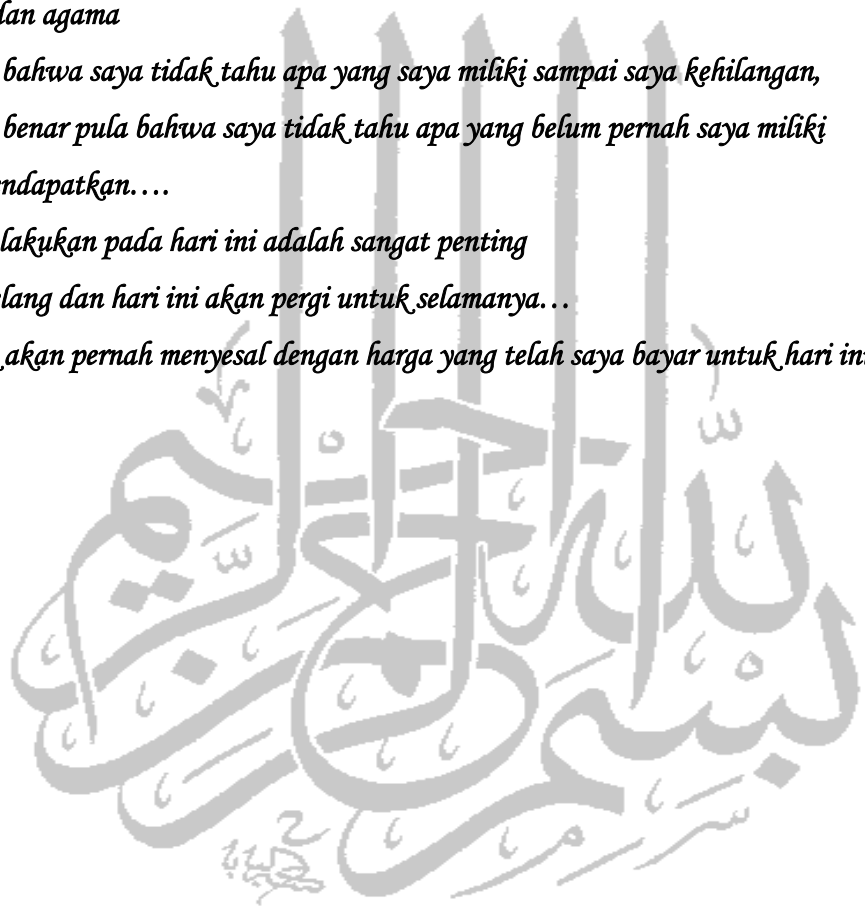 dan agama
bahwa saya tidak tahu apa yang saya miliki sampai saya kehilangan,
benar pula bahwa saya tidak tahu apa yang belum pernah saya miliki
endapatkan….
lakukan pada hari ini adalah sangat penting
elang dan hari ini akan pergi untuk selamanya…
akan pernah menyesal dengan harga yang telah saya bayar untuk hari ini
بسم الله الرحمن الرحيم